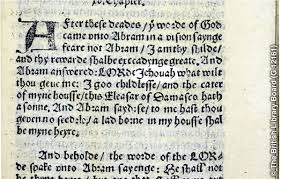 xv. Chapter.
AFter these deades / yͤ worde of God
came vnto Abram in a vision sayenge
feare not Abram / I am thy shilde /
and thy rewarde shalbe exceadynge greate. And
Abram answered: LORde Jehouah what wilt
thou geue me: I goo childlesse / and the cater
of myne housse / this Eleasar of Damasco hath
a sonne. And Abram sayde / se / to me hast thou
geven no seed: lo / a lad borne in my housse shall
be myne heyre.
And beholde / the worde of the LOR-
de spake vnto Abram sayenge: He shall not
be thyne
© The British Library Board (G.12161)